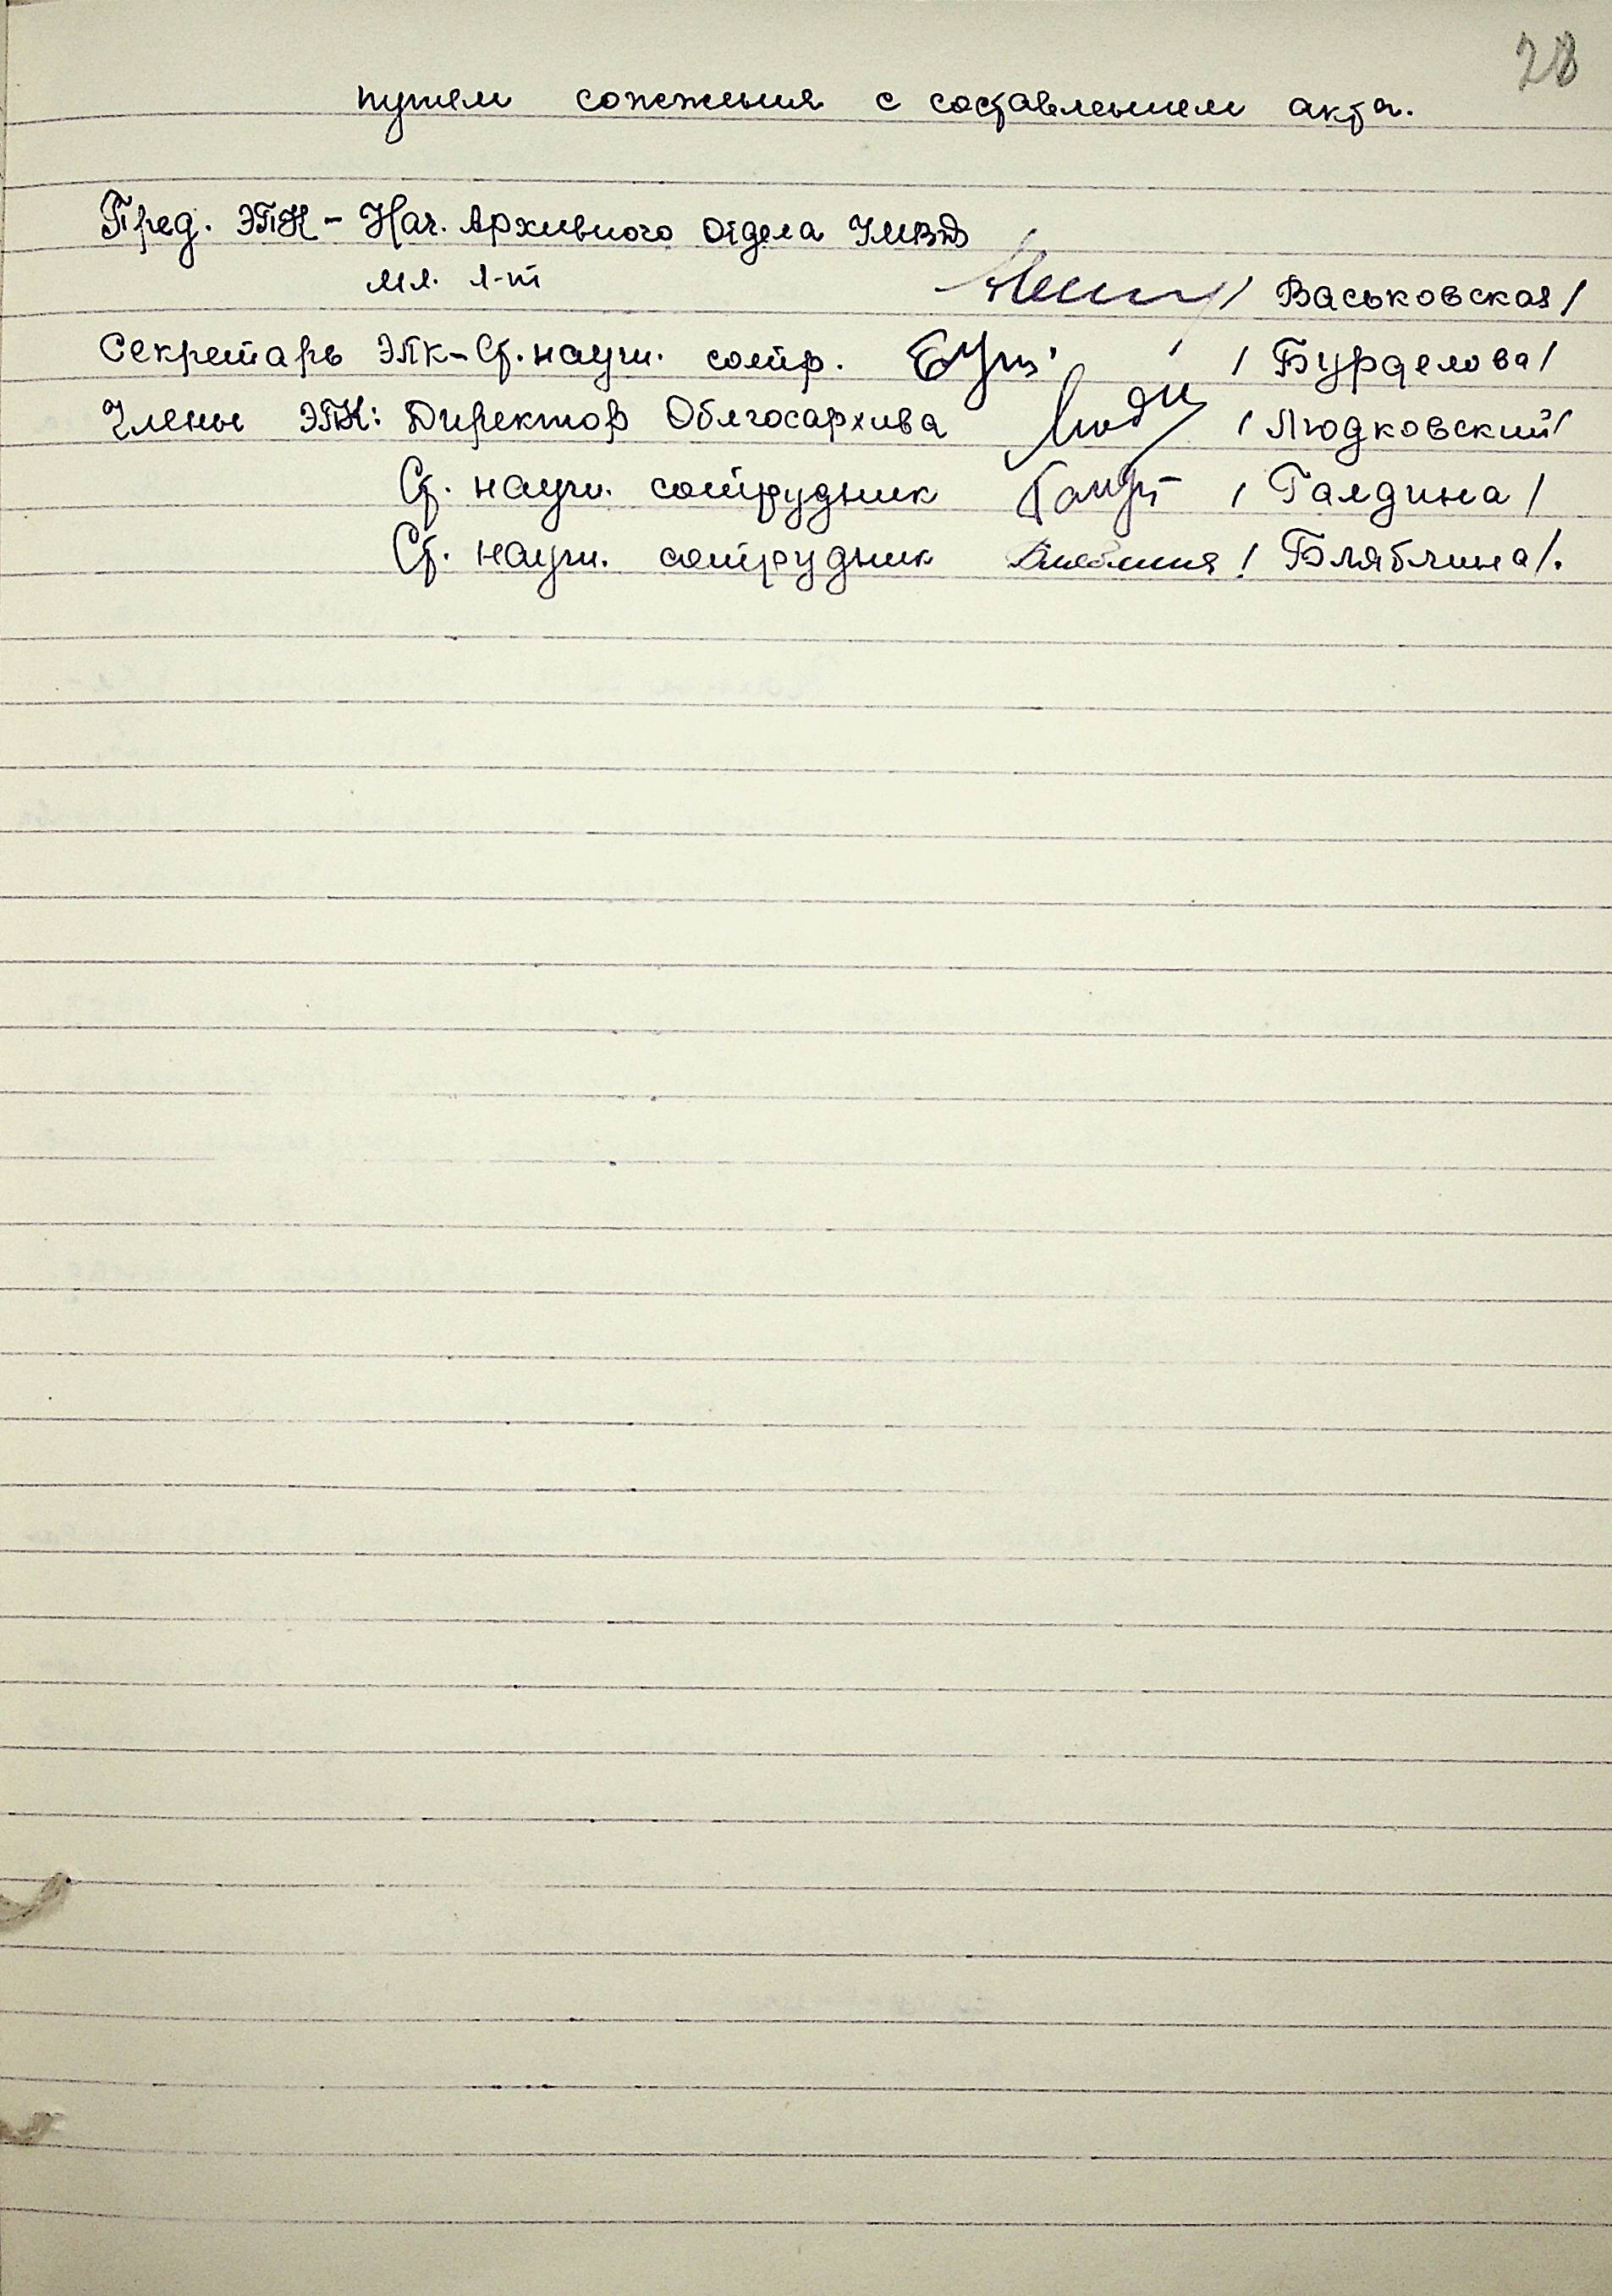 28
путем сожжения с составлением акта.
Пред. ЭПК - Нач. Архивного отдела УМВД
мл. л-т /Васьковская/
Секретарь ЭПК - Ст. научн. сотр. /Бурделова/
Члены ЭПК: Директор Облгосархива /Людковский/
Ст. научн. сотрудник /Галдина/
Ст. научн. сотрудник /Бляблина/.